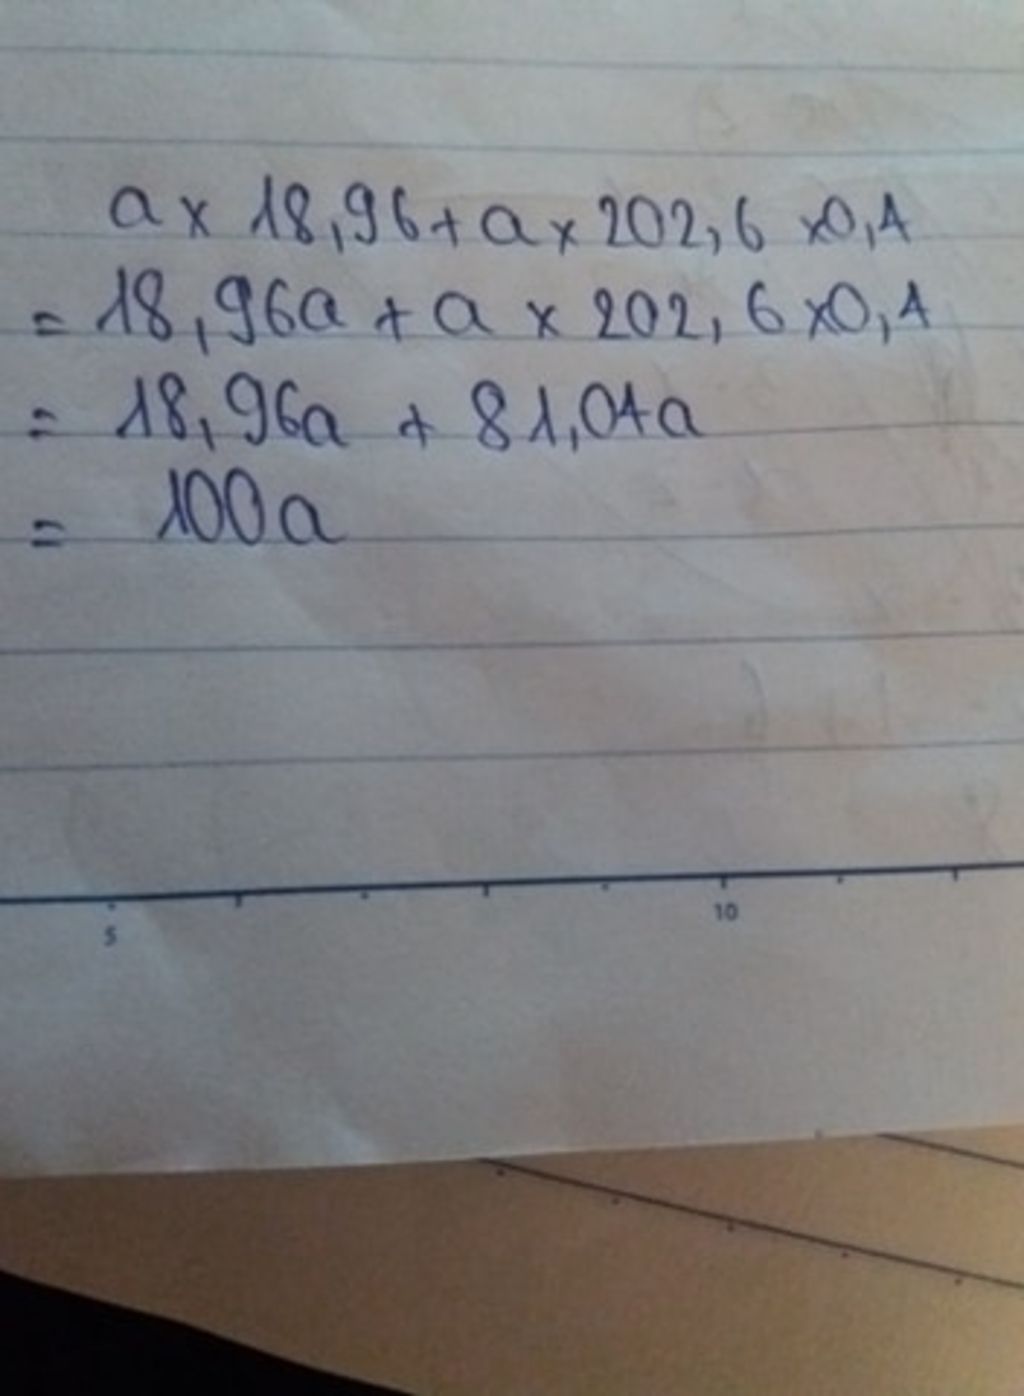 a x 18,96 + a x 202,6 x0,4
= 18,96a + a x 202,6 x0,4
= 18,96a + 81,04a
= 100a
5
10